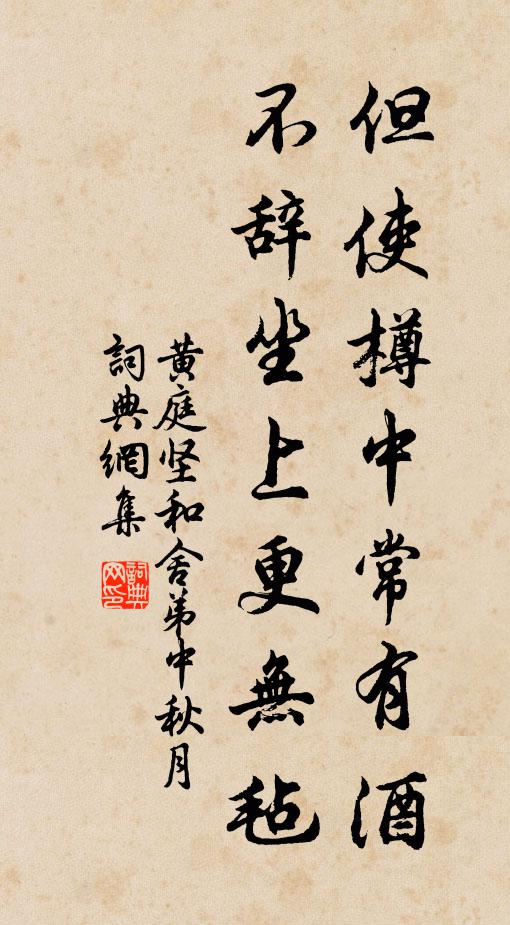 但使樽中常有酒
不辞坐上更無毡
黄庭坚和舍弟中秋月
詞典網集
詞典网印